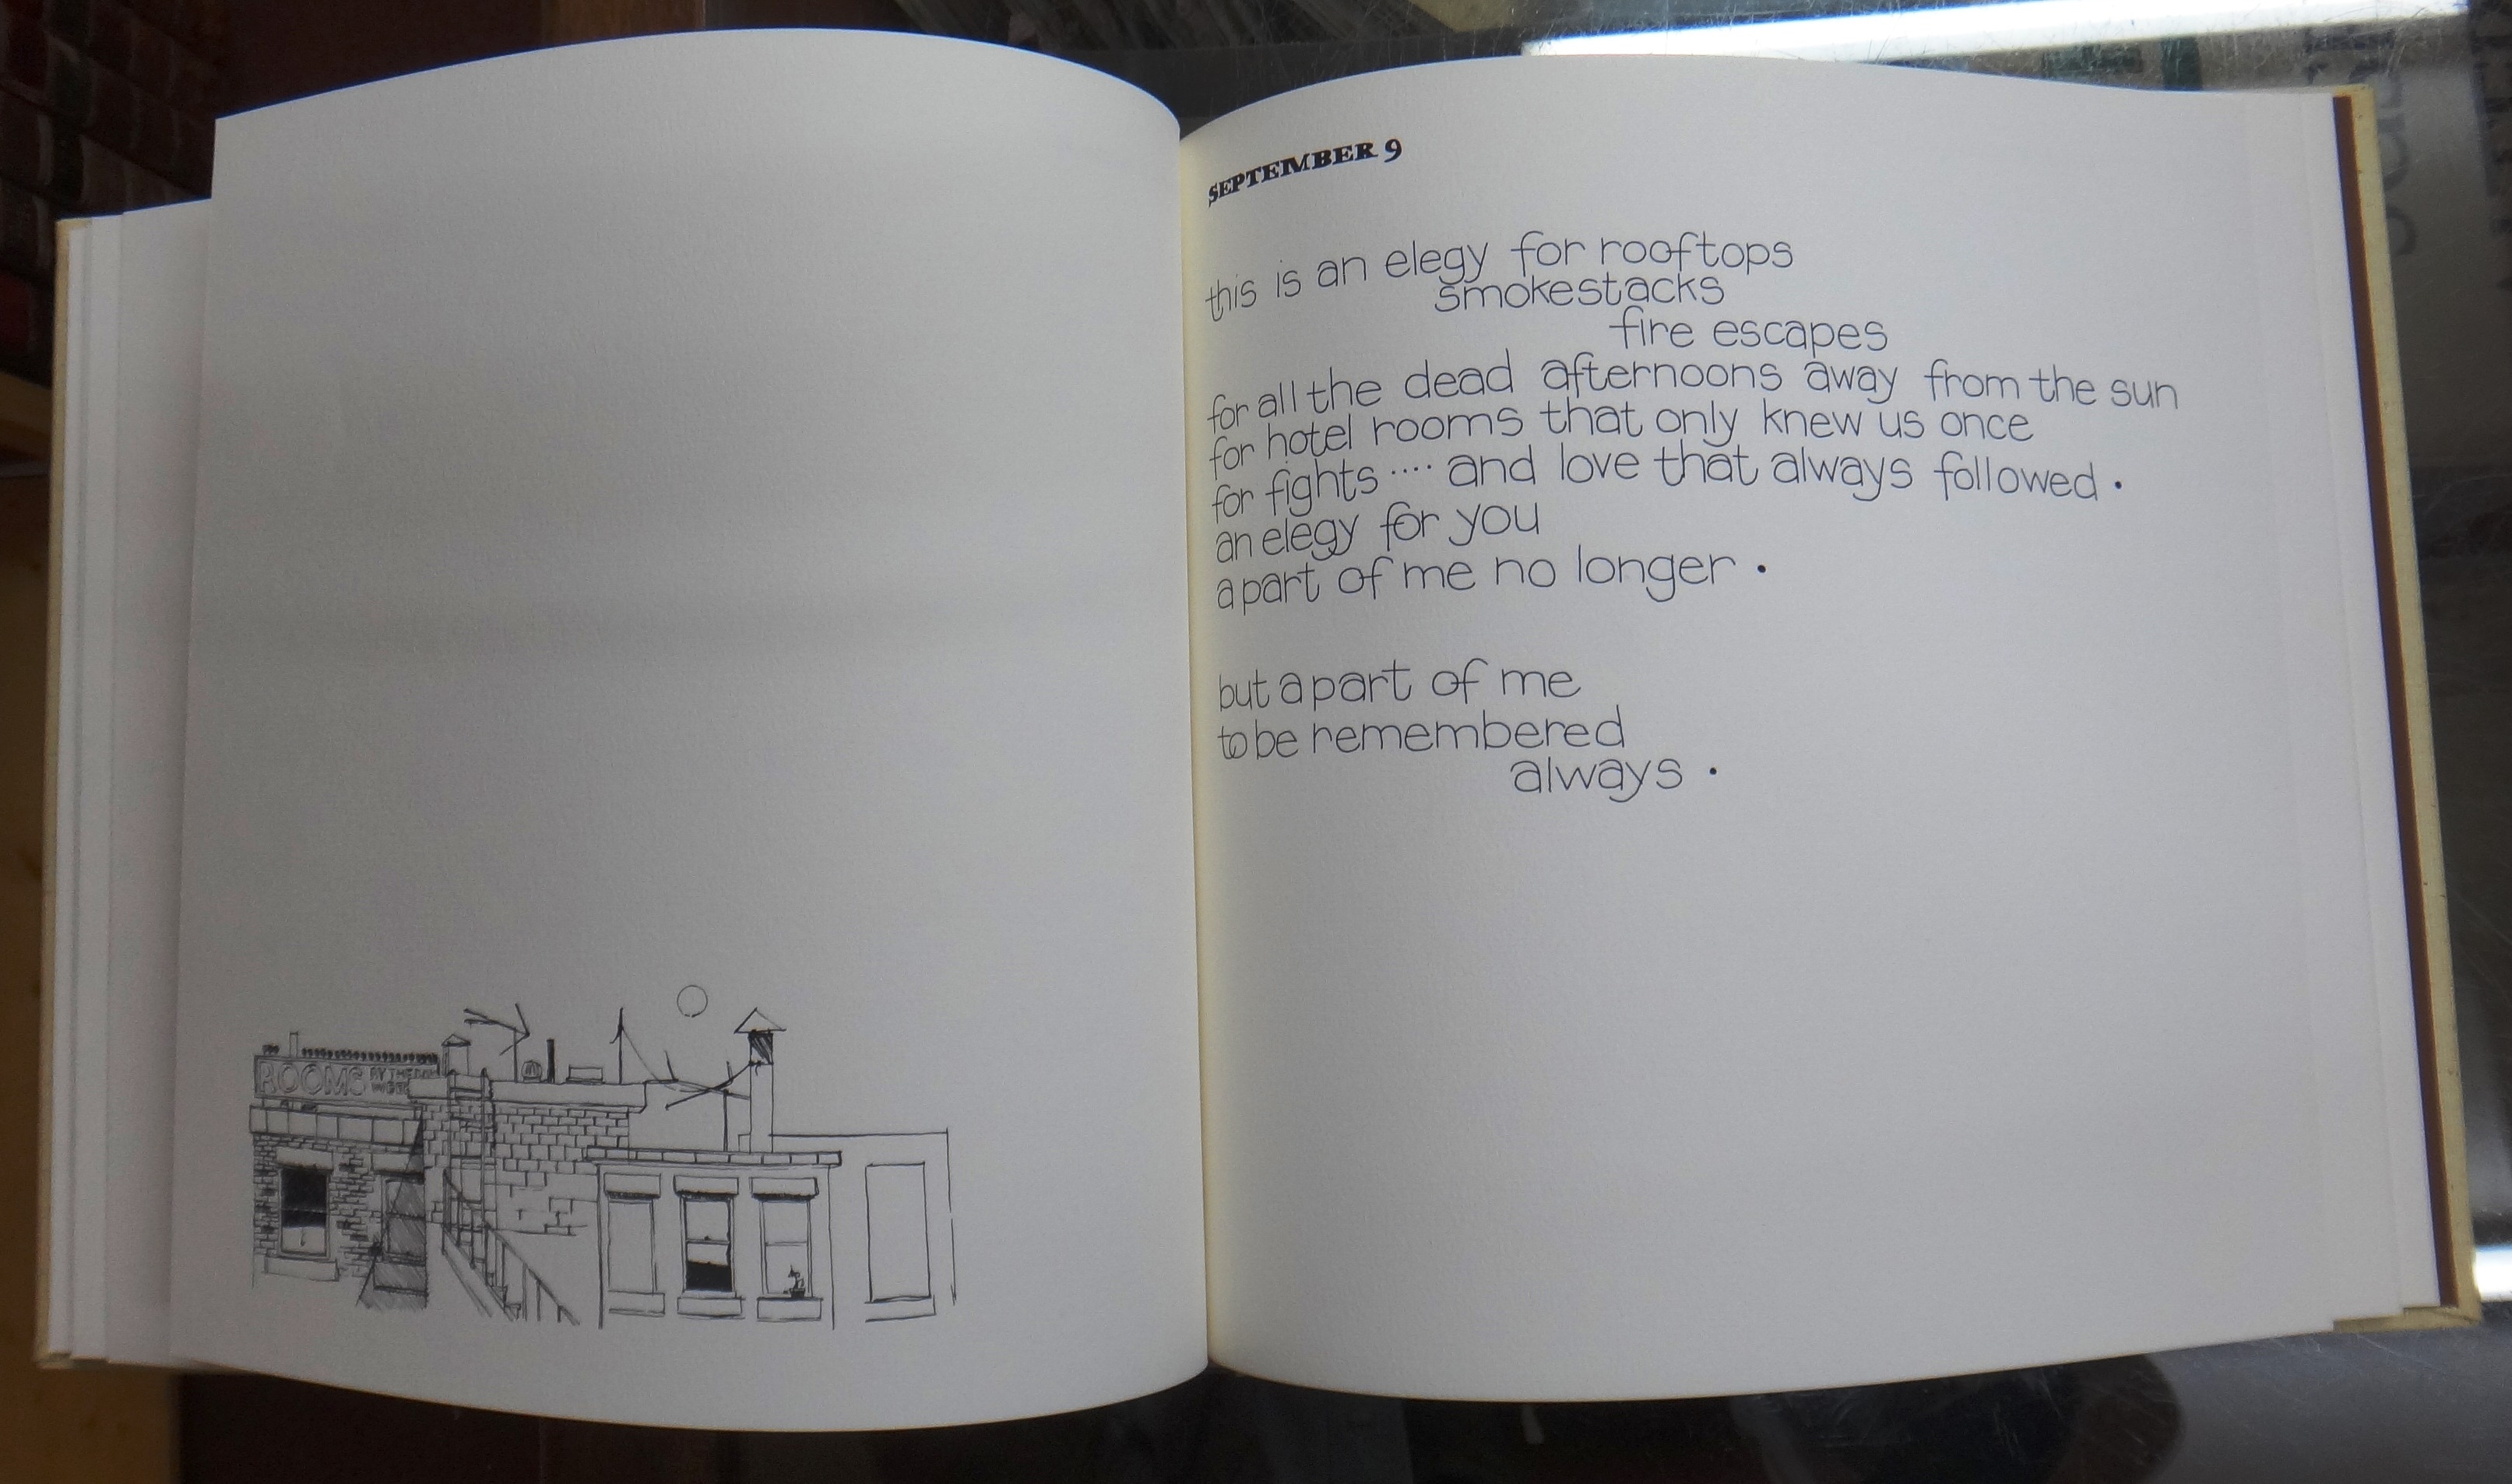 ROOMS
BY THE
SEPTEMBER 9
this is an elegy for rooftops
smokestacks
fire escapes
for all the dead afternoons away from the sun
for hotel rooms that only knew us once
for fights .... and love that always followed .
an elegy for you
a part of me no longer .
but a part of me
to be remembered
always .